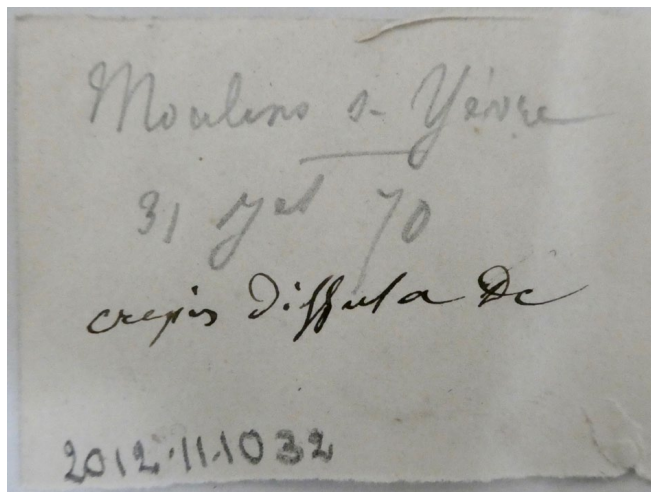 Moulins s- Yèvre
31 Jet 70
crepis diffusa Dc
2012.11.1032